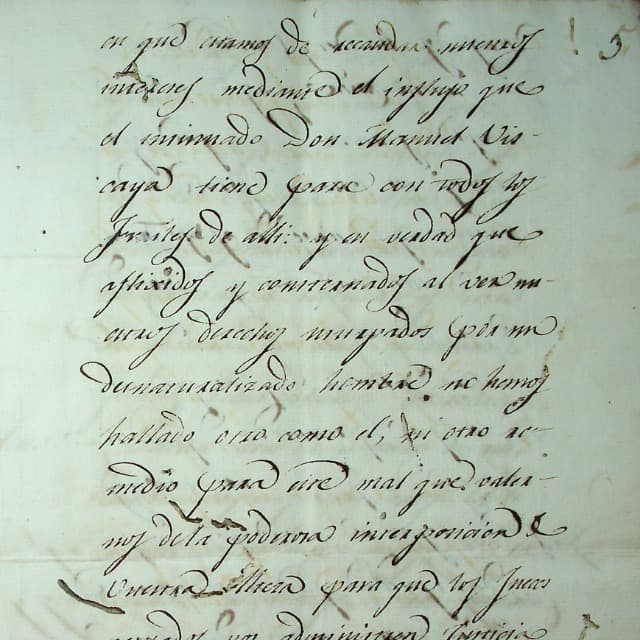 5
en que estamos de recaudar nuestros
intereses mediante el influjo que
el insinuado Don Manuel Vis-
caya tiene para con todos los
Jueces de alli: y en verdad que
aflixidos y consternados al ver nu-
estros derechos usurpados por un
desnaturalizado hombre no hemos
hallado otro como el, ni otro re-
medio para este mal que valer-
nos de la poderosa interposicion
Vuestra Alteza para que los Jueces
nos administren justicia